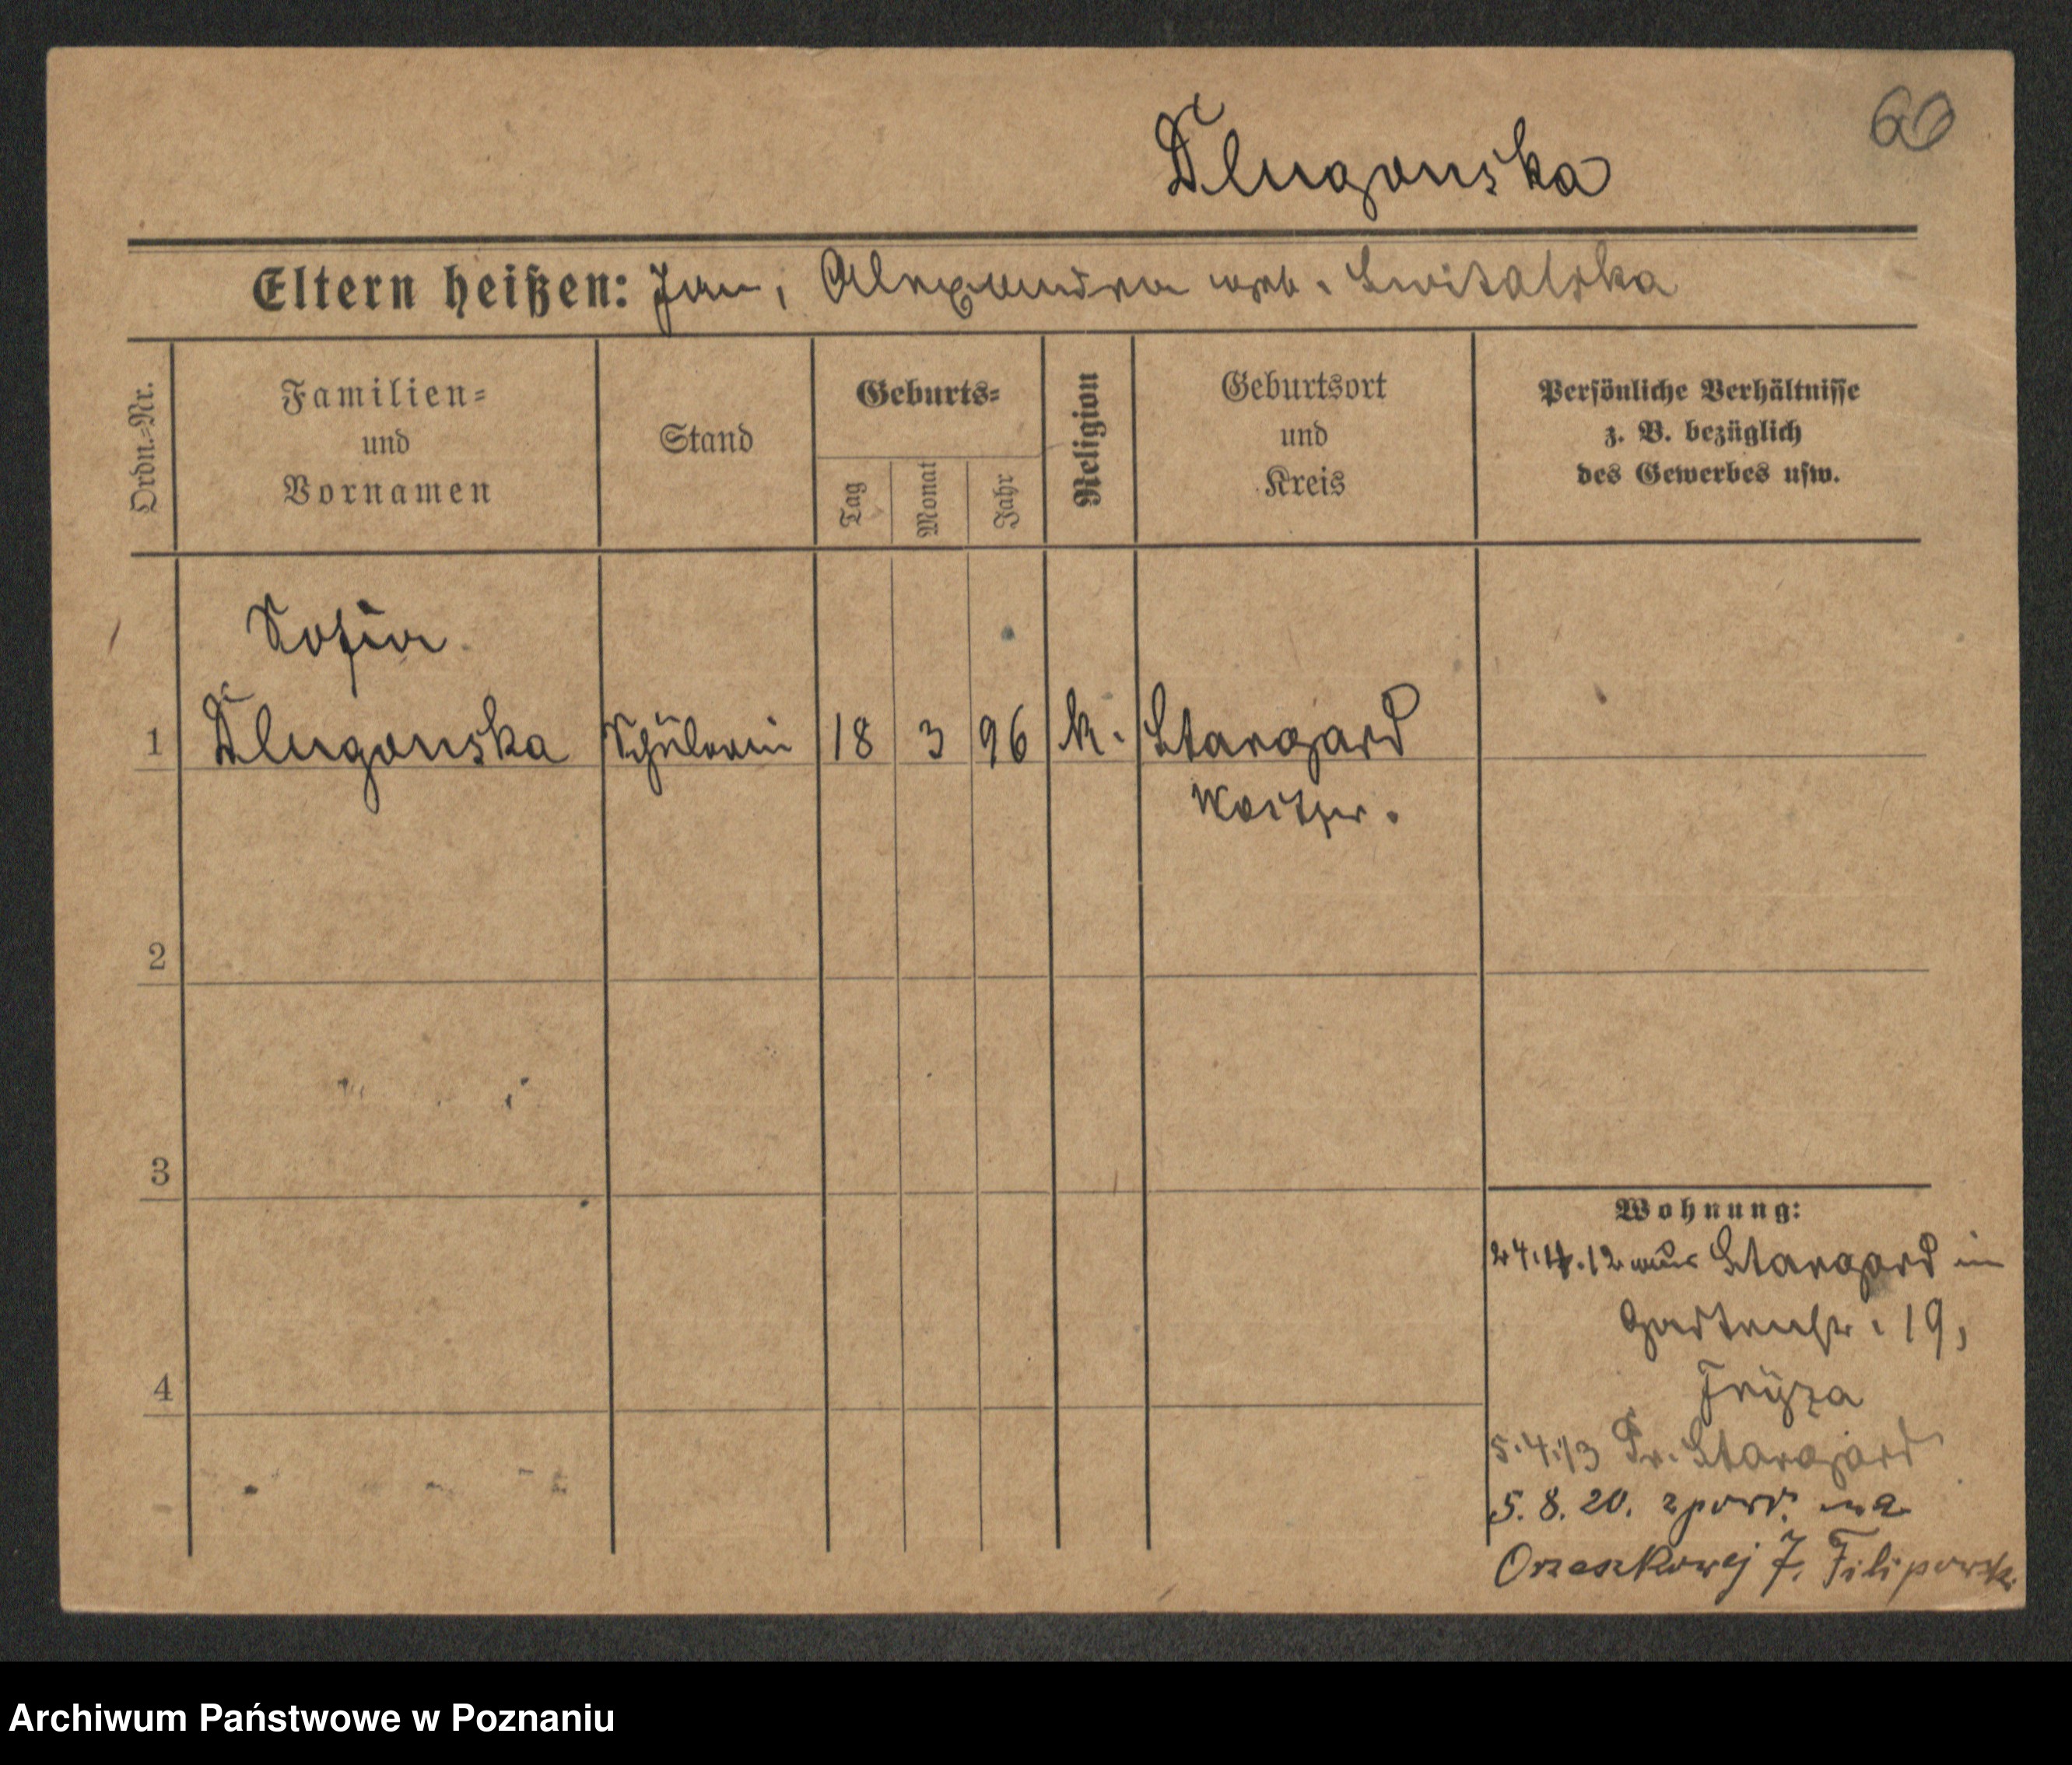 60
Dlugonska
Eltern heißen: Jan, Alexandra geb. Switalska
Ordn.-Nr.
Familien-
und
Vornamen
Stand
Geburts-
Tag
Monat
Jahr
Religion
Geburtsort
und
Kreis
Persönliche Verhältnisse
z. B. bezüglich
des Gewerbes usw.
Sofia
1 Dlugonska Schülerin 18 3 96 k. Stargard
Westpr.
2
3
4
Wohnung:
24.4.12 aus Stargard in
Gartenstr. 19,
5.4.13 Pr. Stargard
5. 8. 20. z powr. na
Orzeszkowej 7. Filipowski
Archiwum Państwowe w Poznaniu